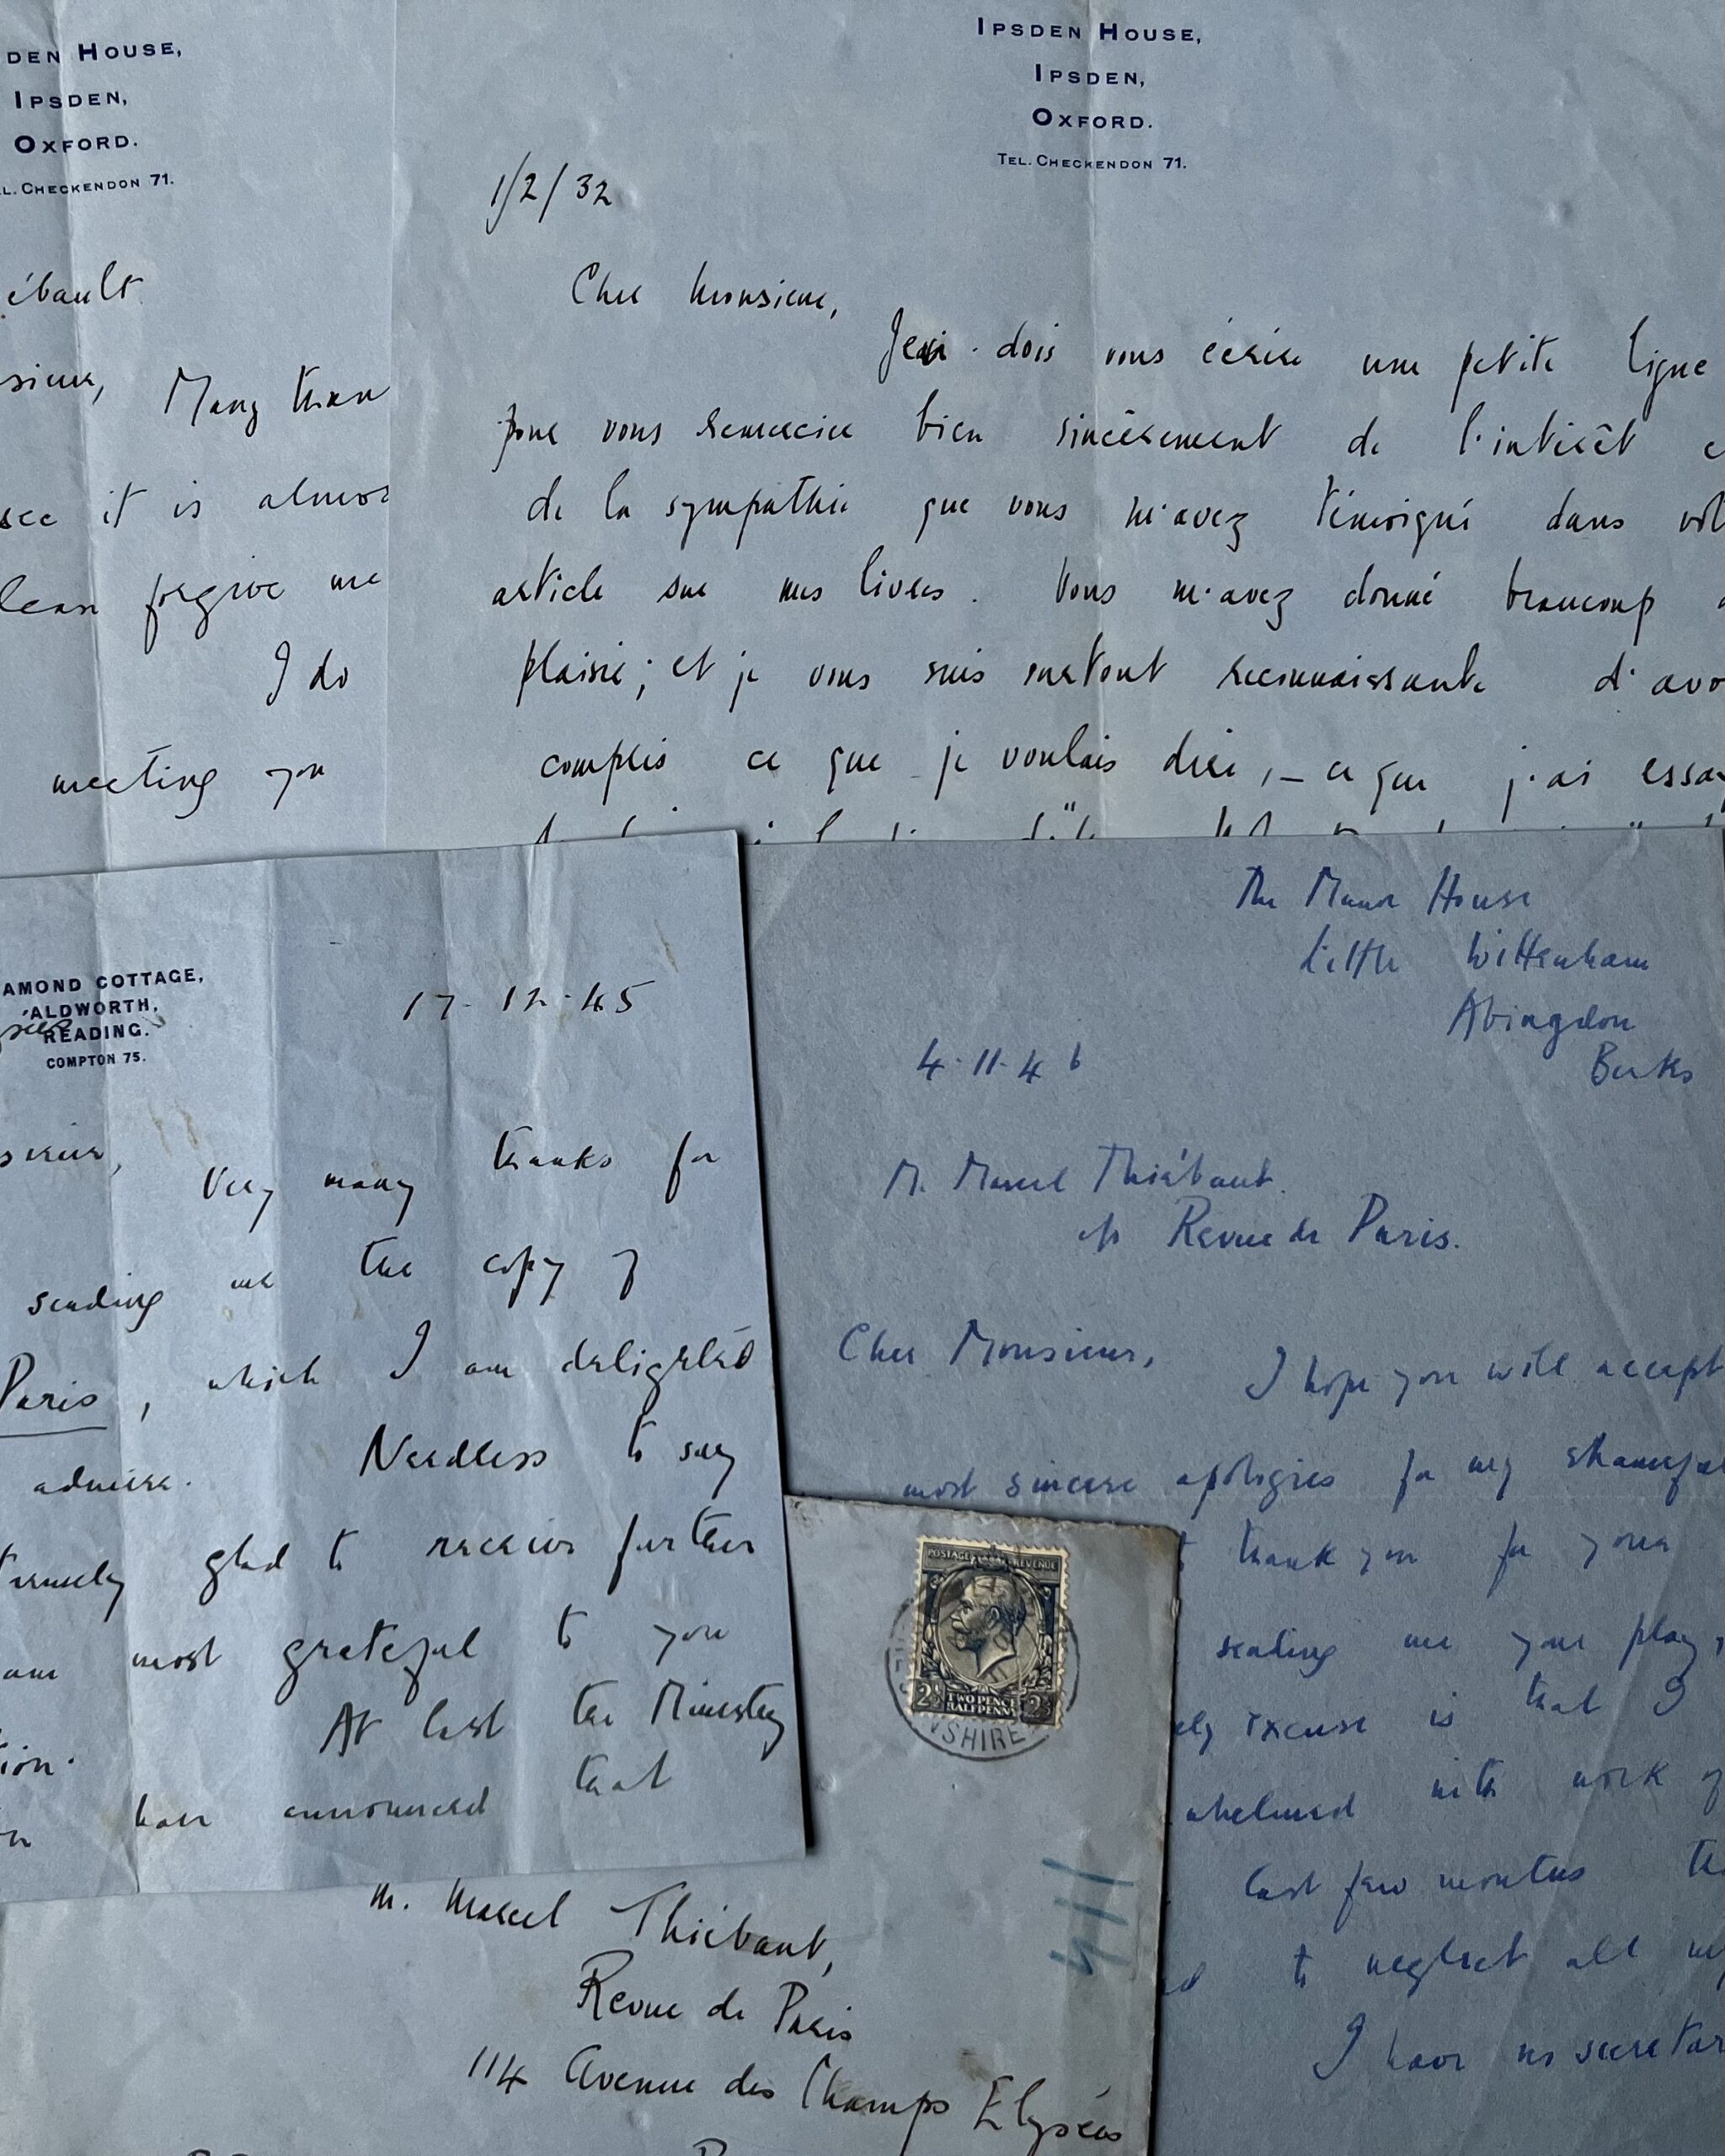 DEN HOUSE,
IPSDEN,
OXFORD.
L. CHECKENDON 71.
ébault
sieur, Many than
see it is almos
lease forgive me
I do
meeting you
IPSDEN HOUSE,
IPSDEN,
OXFORD.
TEL. CHECKENDON 71.
1/2/32
Cher Monsieur,
Je dois vous écrire une petite ligne
pour vous remercier bien sincèrement de l'intérêt
de la sympathie que vous m'avez témoigné dans vot
article sur mes livres. Vous m'avez donné beaucoup
plaisir; et je vous suis surtout reconnaissante d'avo
compris ce que je voulais dire, – ce que j'ai essa
AMOND COTTAGE,
ALDWORTH,
READING.
COMPTON 75.
17-12-45
sieur,
Very many thanks for
sending me the copy of
Paris, which I am delighted
admire. Needless to say
tremely glad to receive further
am most grateful to you
tion. At last the Ministry
have announced that
The Manor House
Little Wittenham
Abingdon
Berks
4.11.46
M. Marcel Thiébaut.
c/o Revue de Paris.
Cher Monsieur,
I hope you will accept
most sincere apologies for my shameful
thank you for your
sending me your play,
ely excuse is that I
whelmed with work of
last few months
to neglect all my
I have no secretar
POSTAGE REVENUE
2½ TWO PENCE HALFPENNY 2½
SHIRE
M. Marcel Thiébaut,
Revue de Paris
114 Avenue des Champs Elysées